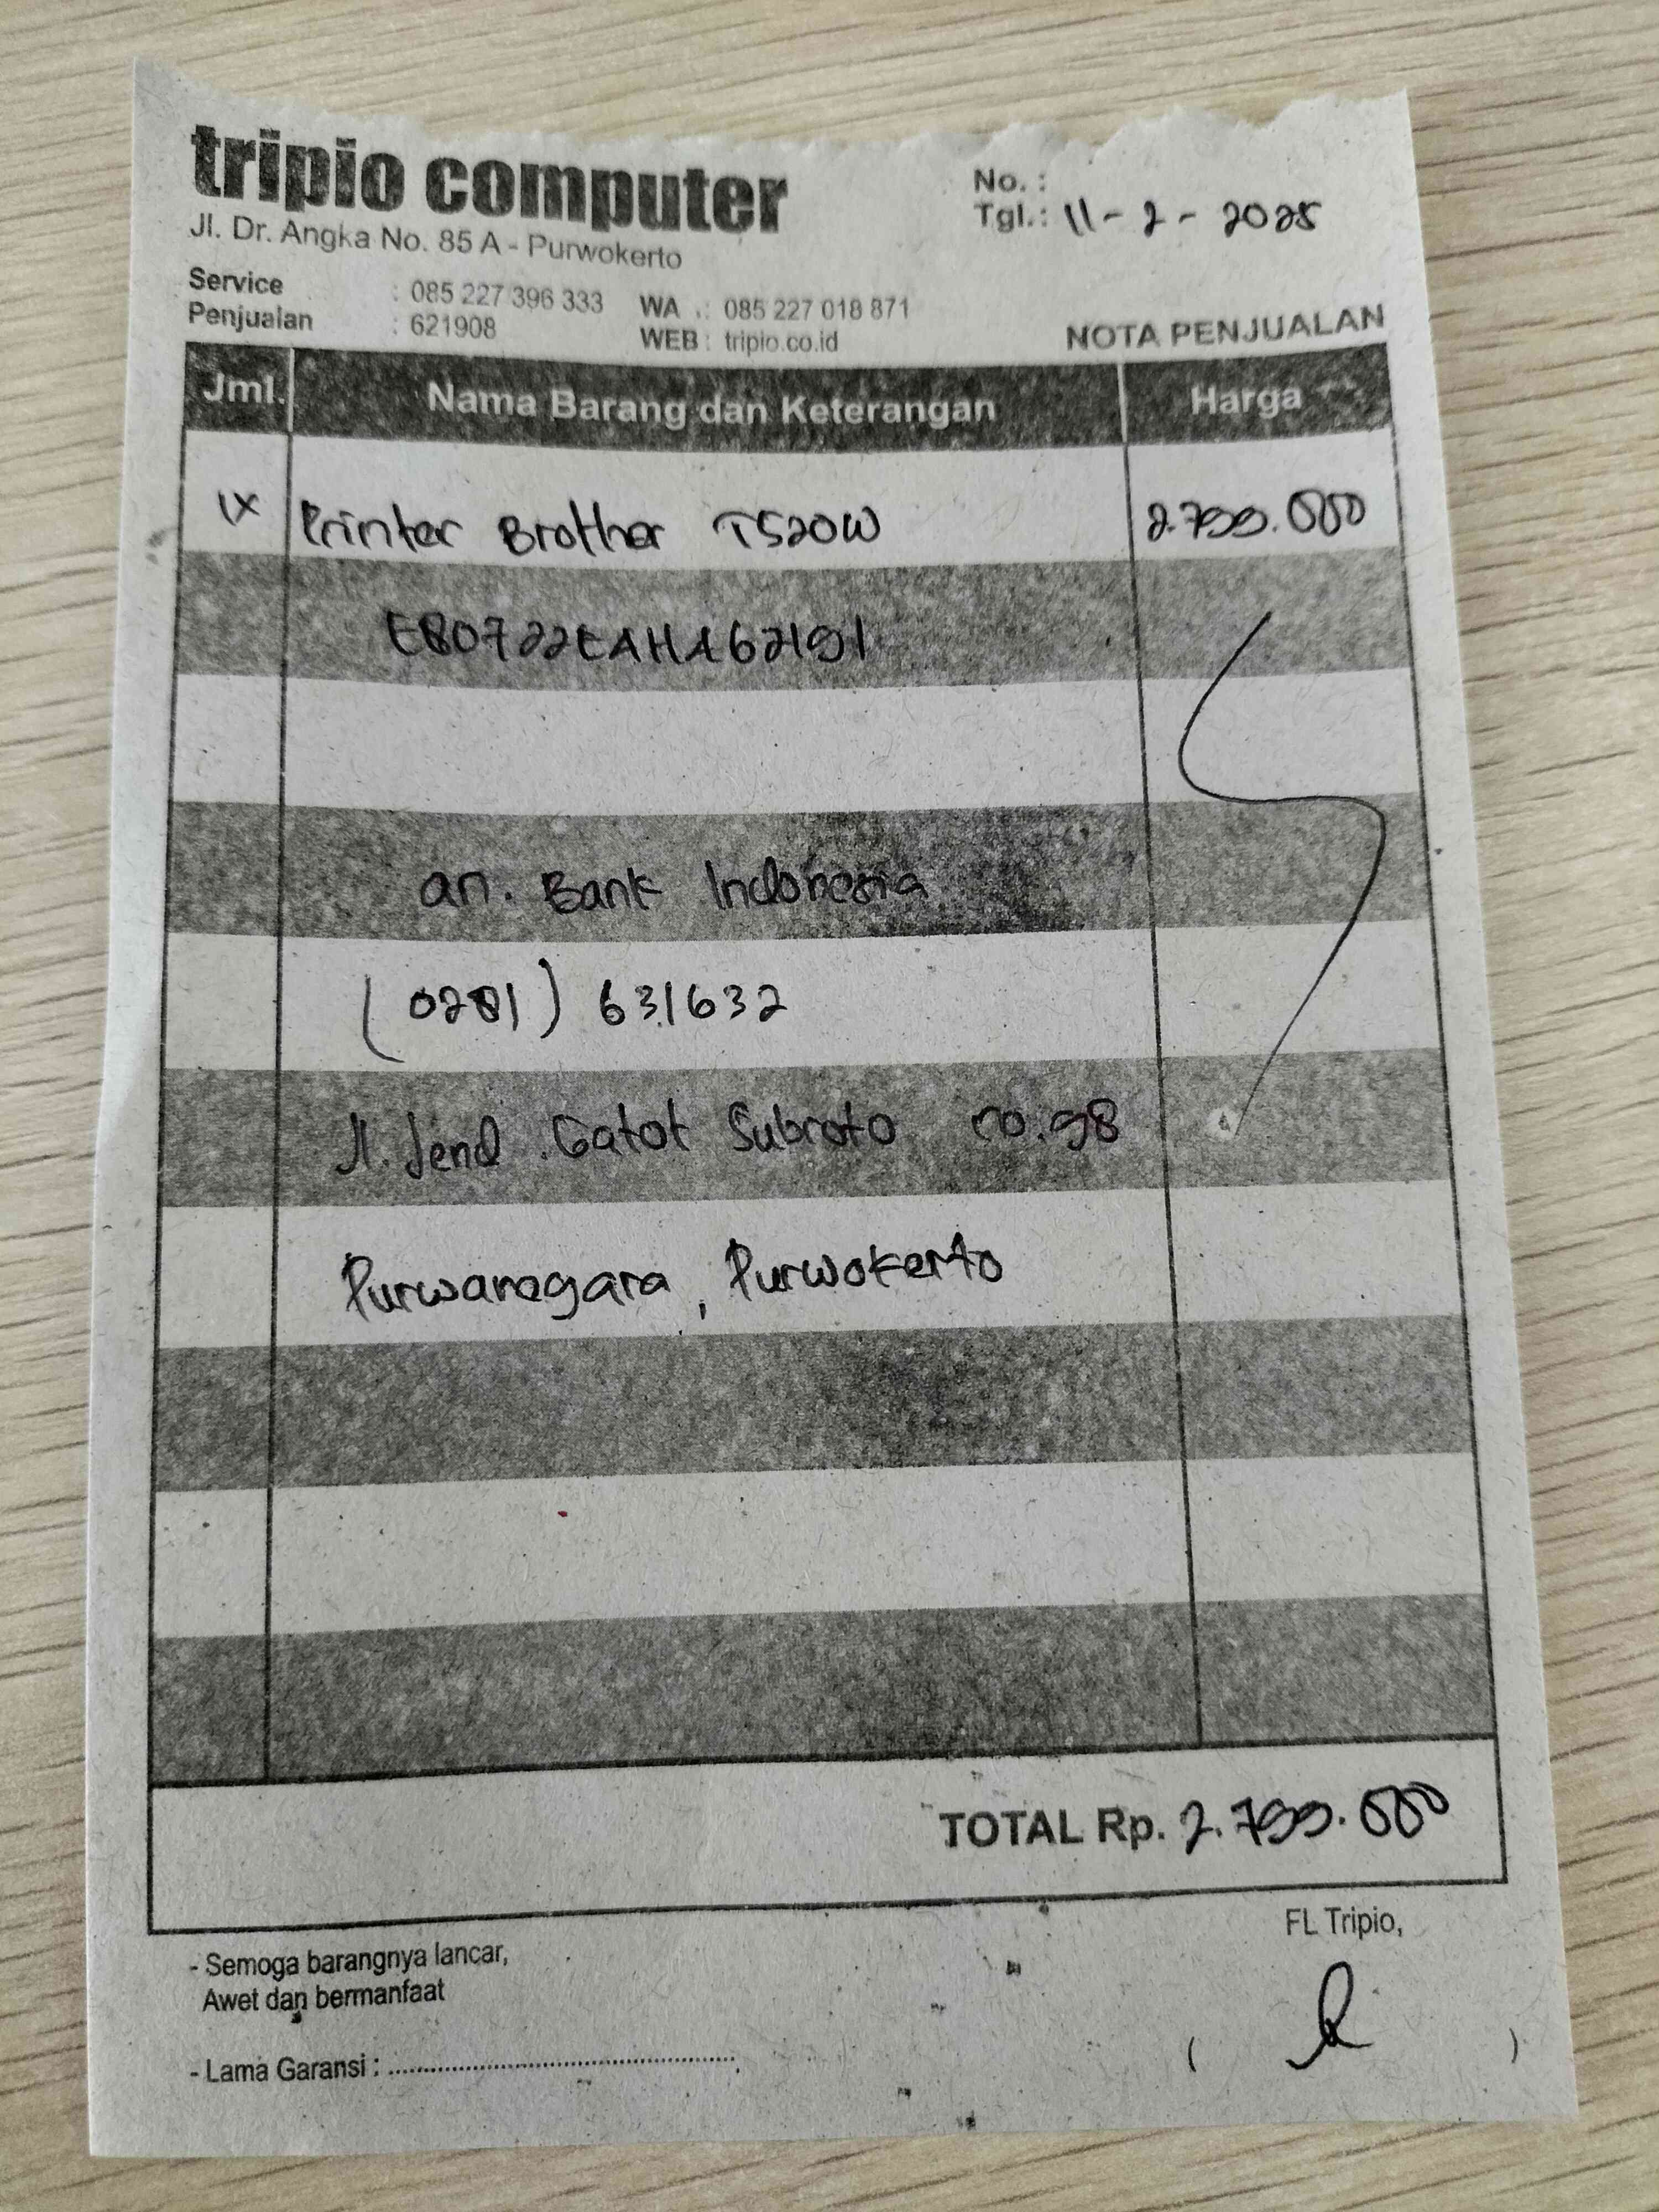 tripio computer
Jl. Dr. Angka No. 85 A - Purwokerto
No. :
Tgl.: 11 - 2 - 2025
Service : 085 227 396 333 WA .: 085 227 018 871
Penjualan : 621908 WEB : tripio.co.id
NOTA PENJUALAN
Jml. Nama Barang dan Keterangan Harga
1x Printer Brother T520W 2.799.000
E80722EAHA62191
an. Bank Indonesia
(0281) 631632
Jl. Jend. Gatot Subroto no. 98
Purwanegara, Purwokerto
TOTAL Rp. 2.799.000
FL Tripio,
- Semoga barangnya lancar,
Awet dan bermanfaat
- Lama Garansi : ..................................................
( )